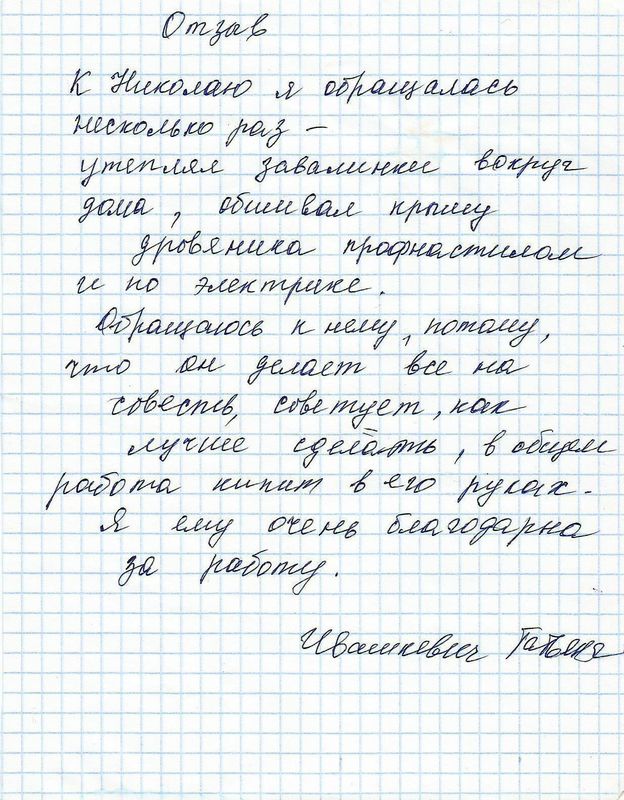 Отзыв
К Николаю я обращалась
несколько раз –
утеплял завалинки вокруг
дома, обшивал крышу
дровяника профнастилом
и по электрике.
Обращаюсь к нему, потому,
что он делает все на
совесть, советует, как
лучше сделать, в общем
работа кипит в его руках.
Я ему очень благодарна
за работу.
Ивашкевич Татьяна